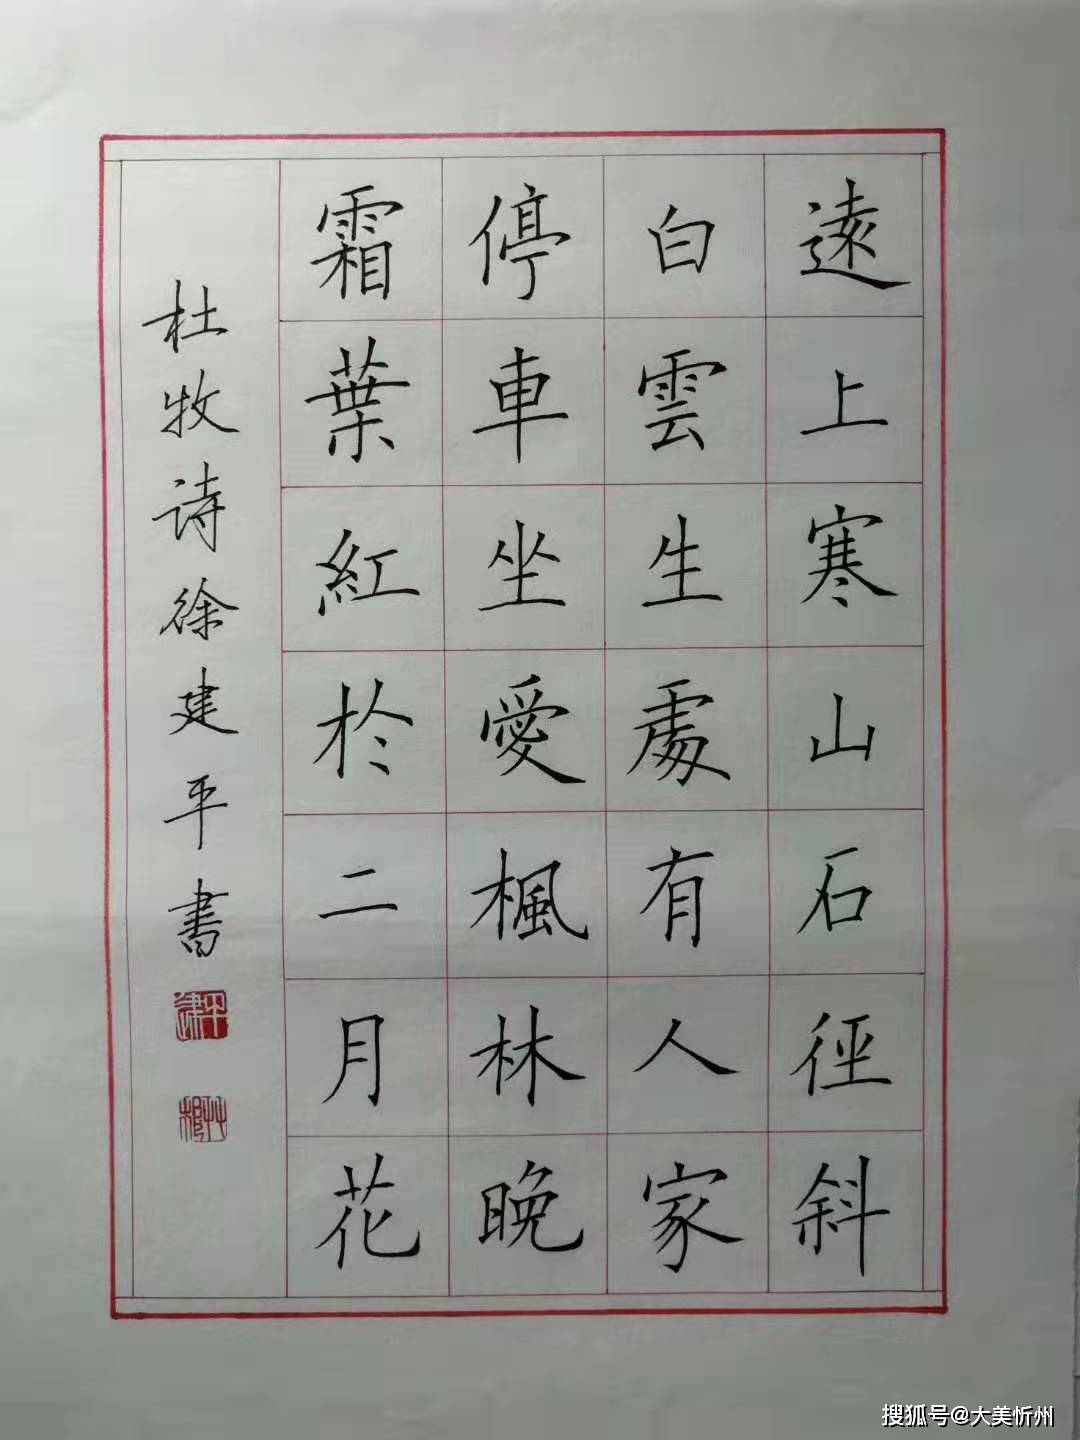 遠上寒山石徑斜
白雲生處有人家
停車坐愛楓林晚
霜葉紅於二月花
杜牧诗徐建平書
建平
搜狐号@大美忻州